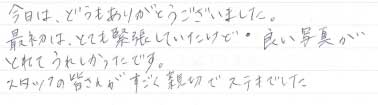 今日は、どうもありがとうございました。
最初は、とても緊張していたけど・良い写真が
とれてうれしかったです。
スタッフの皆さんがすごく親切でステキでした